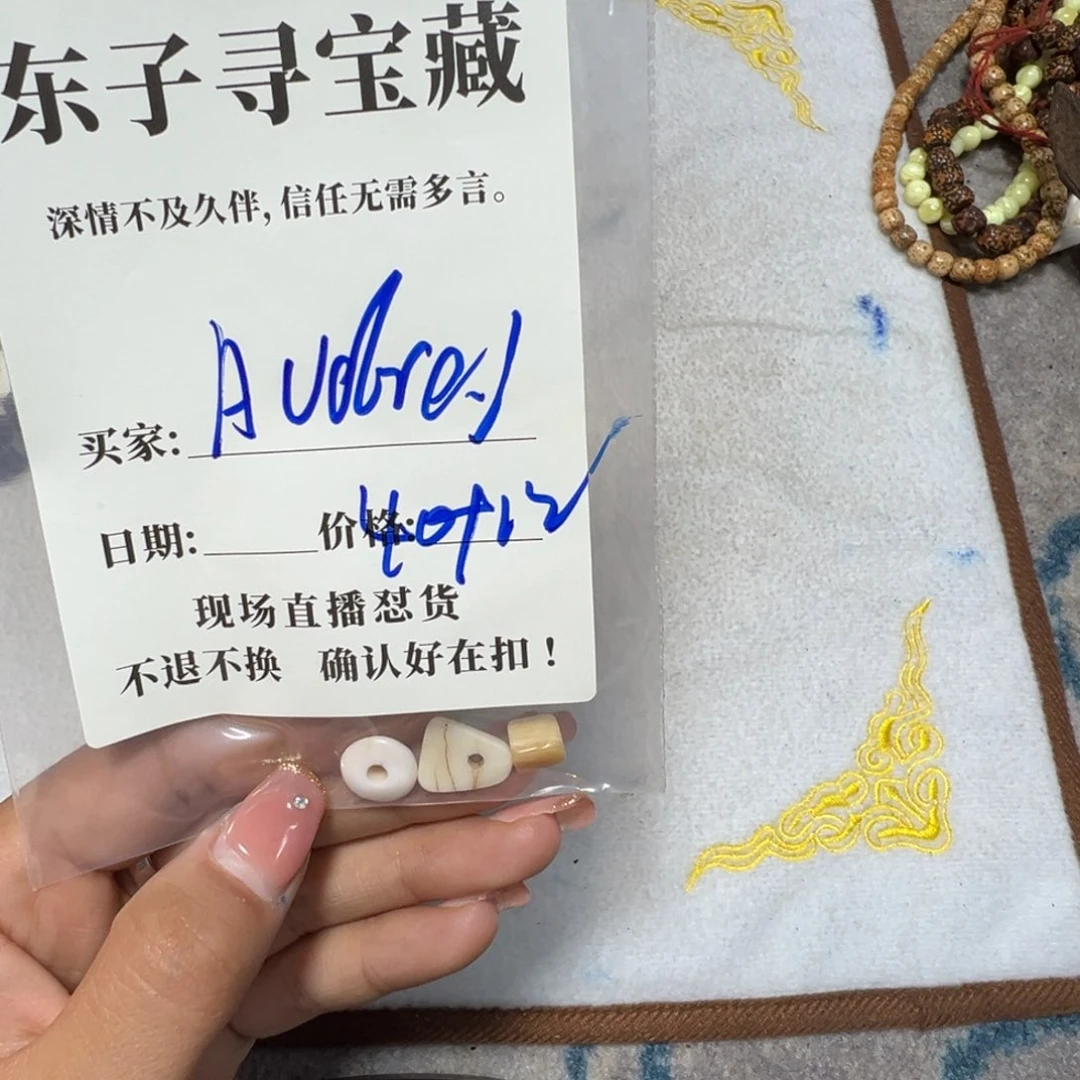 东子寻宝藏
深情不及久伴,信任无需多言。
买家: Aubrey
日期:______价格: 40+12
现场直播怼货
不退不换 确认好在扣!